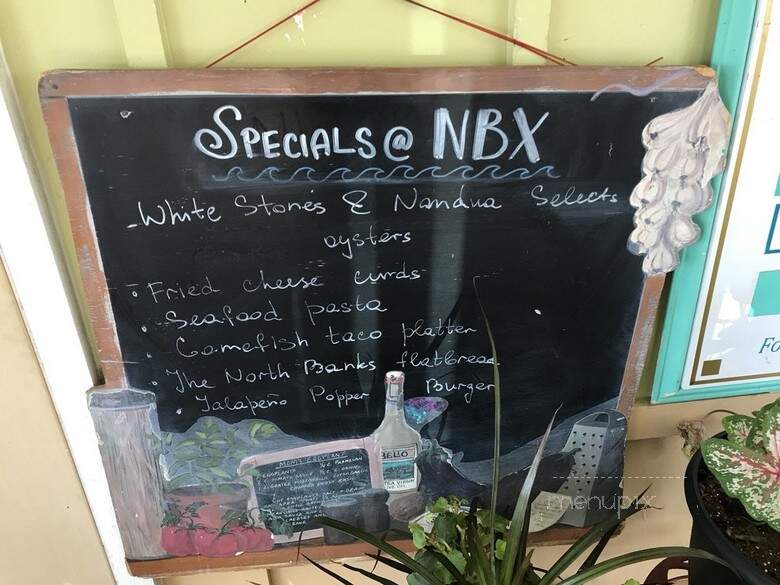 SPECIALS @ NBX
- White Stones & Nandua Selects
oysters
• Fried cheese curds
• Seafood pasta
• Gamefish taco platter
• The North Banks flatbread
• Jalapeño Popper Burger
MOM'S EGGPLANT
BELLO
menupix
Fo